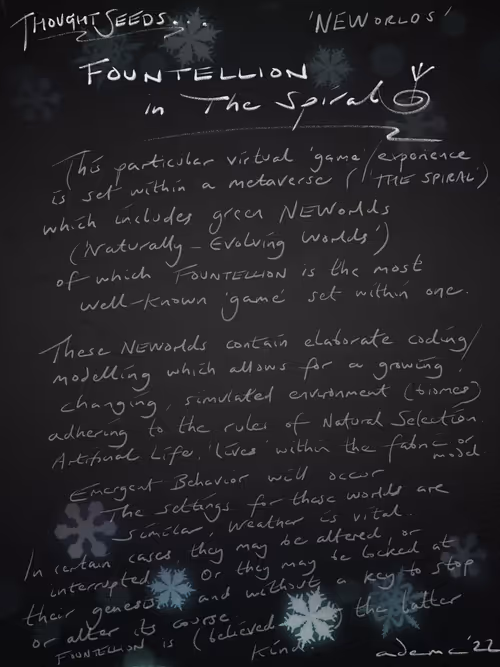 THOUGHTSEEDS... 'NEWORLDS'
FOUNTELLION
in The Spiral
This particular virtual 'game'/experience
is set within a metaverse ('THE SPIRAL')
which includes green NEWorlds
('Naturally-Evolving Worlds')
of which FOUNTELLION is the most
well-known 'game' set within one.
These NEWorlds contain elaborate coding/
modelling which allows for a growing,
changing, simulated environment (biomes)
adhering to the rules of Natural Selection.
Artificial Life, 'lives' within the fabric or
model.
Emergent Behavior will occur
The settings for these worlds are
similar, Weather is vital.
In certain cases, they may be altered, or
interrupted. Or they may be locked at
their genesis and without a key to stop
or alter its course
FOUNTELLION is (believed) the latter
kind.
adema '22